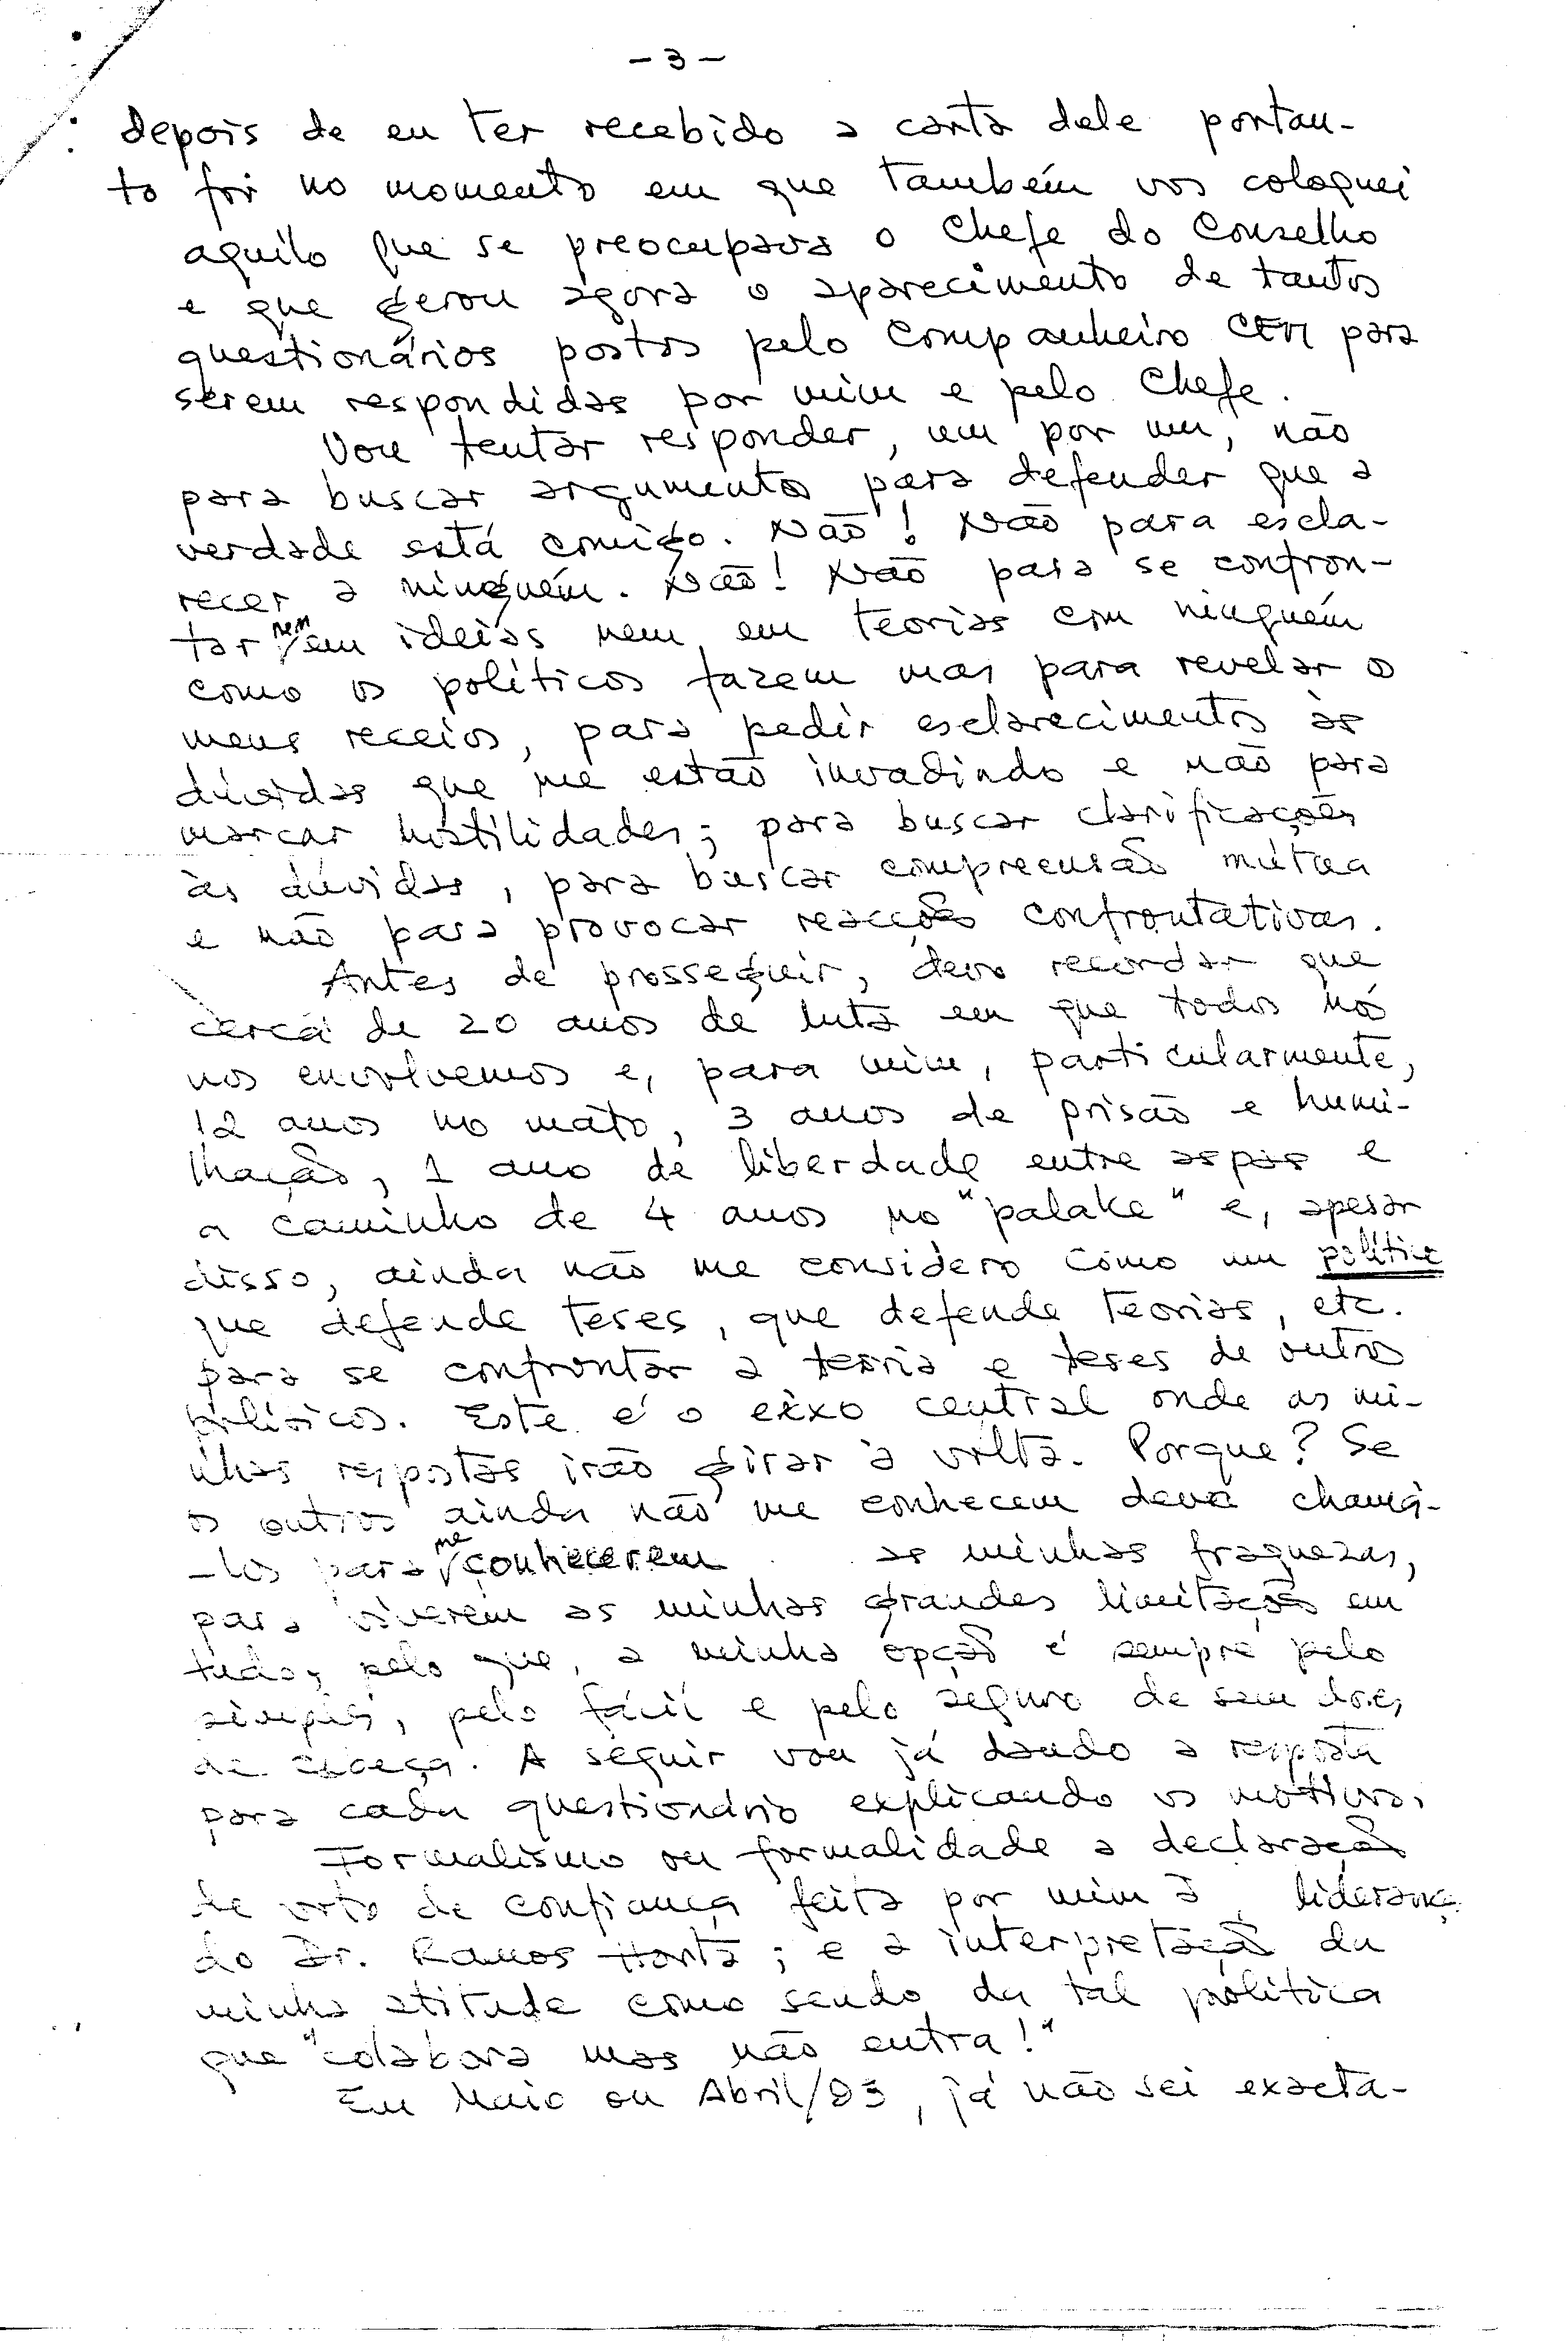 - 3 -
depois de eu ter recebido a carta dele portan-
to foi no momento em que também vos coloquei
aquilo que se preocupava o Chefe do Conselho
e que gerou agora o aparecimento de tantos
questionários postos pelo Companheiro CEM para
serem respondidas por mim e pelo Chefe.
Vou tentar responder, um por um, não
para buscar argumentos para defender que a
verdade está comigo. Não! Não para escla-
recer a ninguém. Não! Não para se confron-
tar nem em ideias nem em teorias com ninguém
como os políticos fazem mas para revelar os
meus receios, para pedir esclarecimentos às
dúvidas que me estão invadindo e não para
marcar hostilidades; para buscar clarificações
às dúvidas, para buscar compreensão mútua
e não para provocar reacções confrontativas.
Antes de prosseguir, devo recordar que
cerca de 20 anos de luta em que todos nós
nos envolvemos e, para mim, particularmente,
12 anos no mato, 3 anos de prisão e humi-
lhação, 1 ano de liberdade entre aspas e
a caminho de 4 anos no "palake" e, apesar
disso, ainda não me considero como um político
que defende teses, que defende teorias, etc.
para se confrontar a teoria e teses de outros
políticos. Este é o eixo central onde as mi-
nhas respostas irão girar à volta. Porque? Se
os outros ainda não me conhecem devo chamá-
-los para me conhecerem as minhas fraquezas,
para viverem as minhas grandes limitações em
tudo, pelo que, a minha opção é sempre pelo
simples, pelo fácil e pelo seguro de sem dores
de cabeça. A seguir vou já dando a resposta
para cada questionário explicando os motivos.
Formalismo ou formalidade a declaração
de voto de confiança feita por mim à liderança
do Dr. Ramos Horta; e a interpretação da
minha atitude como sendo da tal política
que "colabora mas não entra!"
Em Maio ou Abril/93, já não sei exacta-